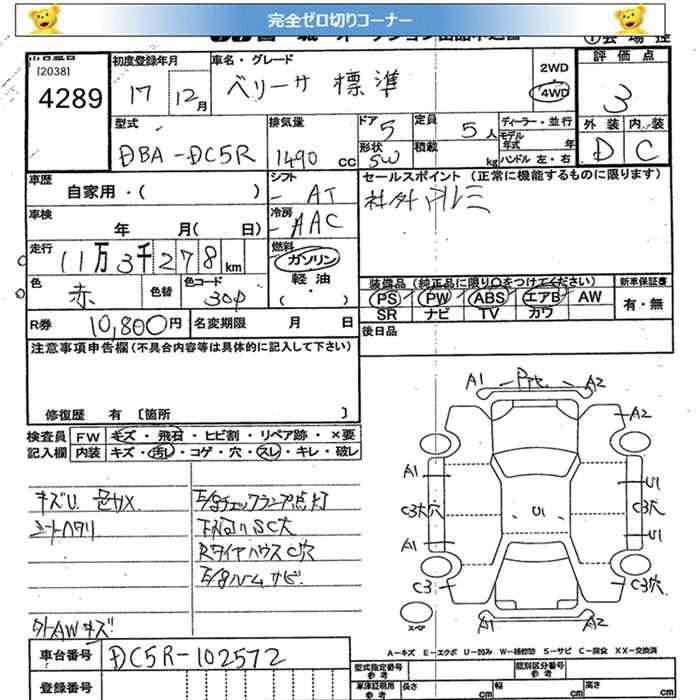 完全ゼロ切りコーナー
[2038]
4289
初度登録年月
17 12月
車名・グレード
ベリーサ 標準
2WD
4WD
評価点
3
外装 内装
D C
型式
DBA-DC5R
排気量
1490 cc
ドア 5
形状 SW
定員 5人
積載 kg
ディーラー・並行
モデル年式 年
ハンドル 左・右
車歴
自家用・( )
シフト
AT
セールスポイント(正常に機能するものに限ります)
社外アルミ
車検
年 月( 日)
冷房
AAC
走行
11万3千278km
燃料
ガソリン
軽油
・( )
色
赤
色替
色コード
30P
装備品(純正品に限り○をつけてください)
PS PW ABS エアB AW
SR ナビ TV カワ
新車保証書
有・無
R券 10,800円
名変期限 月 日
後日品
注意事項申告欄(不具合内容等は具体的に記入して下さい)
修復歴 有 〔箇所 〕
検査員記入欄
FW キズ・飛石・ヒビ割・リペア跡・×要
内装 キズ・汚レ・コゲ・穴・スレ・キレ・破レ
キズU.
シートヘタリ
外AWキズ
チェックランプ点灯
下回りSC大
RタイヤハウスC穴
ルームサビ
A1 A2
A2
A1 U1
C3大穴 U1 C3穴
A1 U1
C3 C3穴
A1 A2
スペア
A−キズ E−エクボ U−凹み W−補修跡 S−サビ C−腐食 XX−交換済
車台番号 DC5R-102572
登録番号
型式指定番号 参考
類別区分番号 参考
車庫証明用 参考 長さ cm 幅 cm 高さ cm